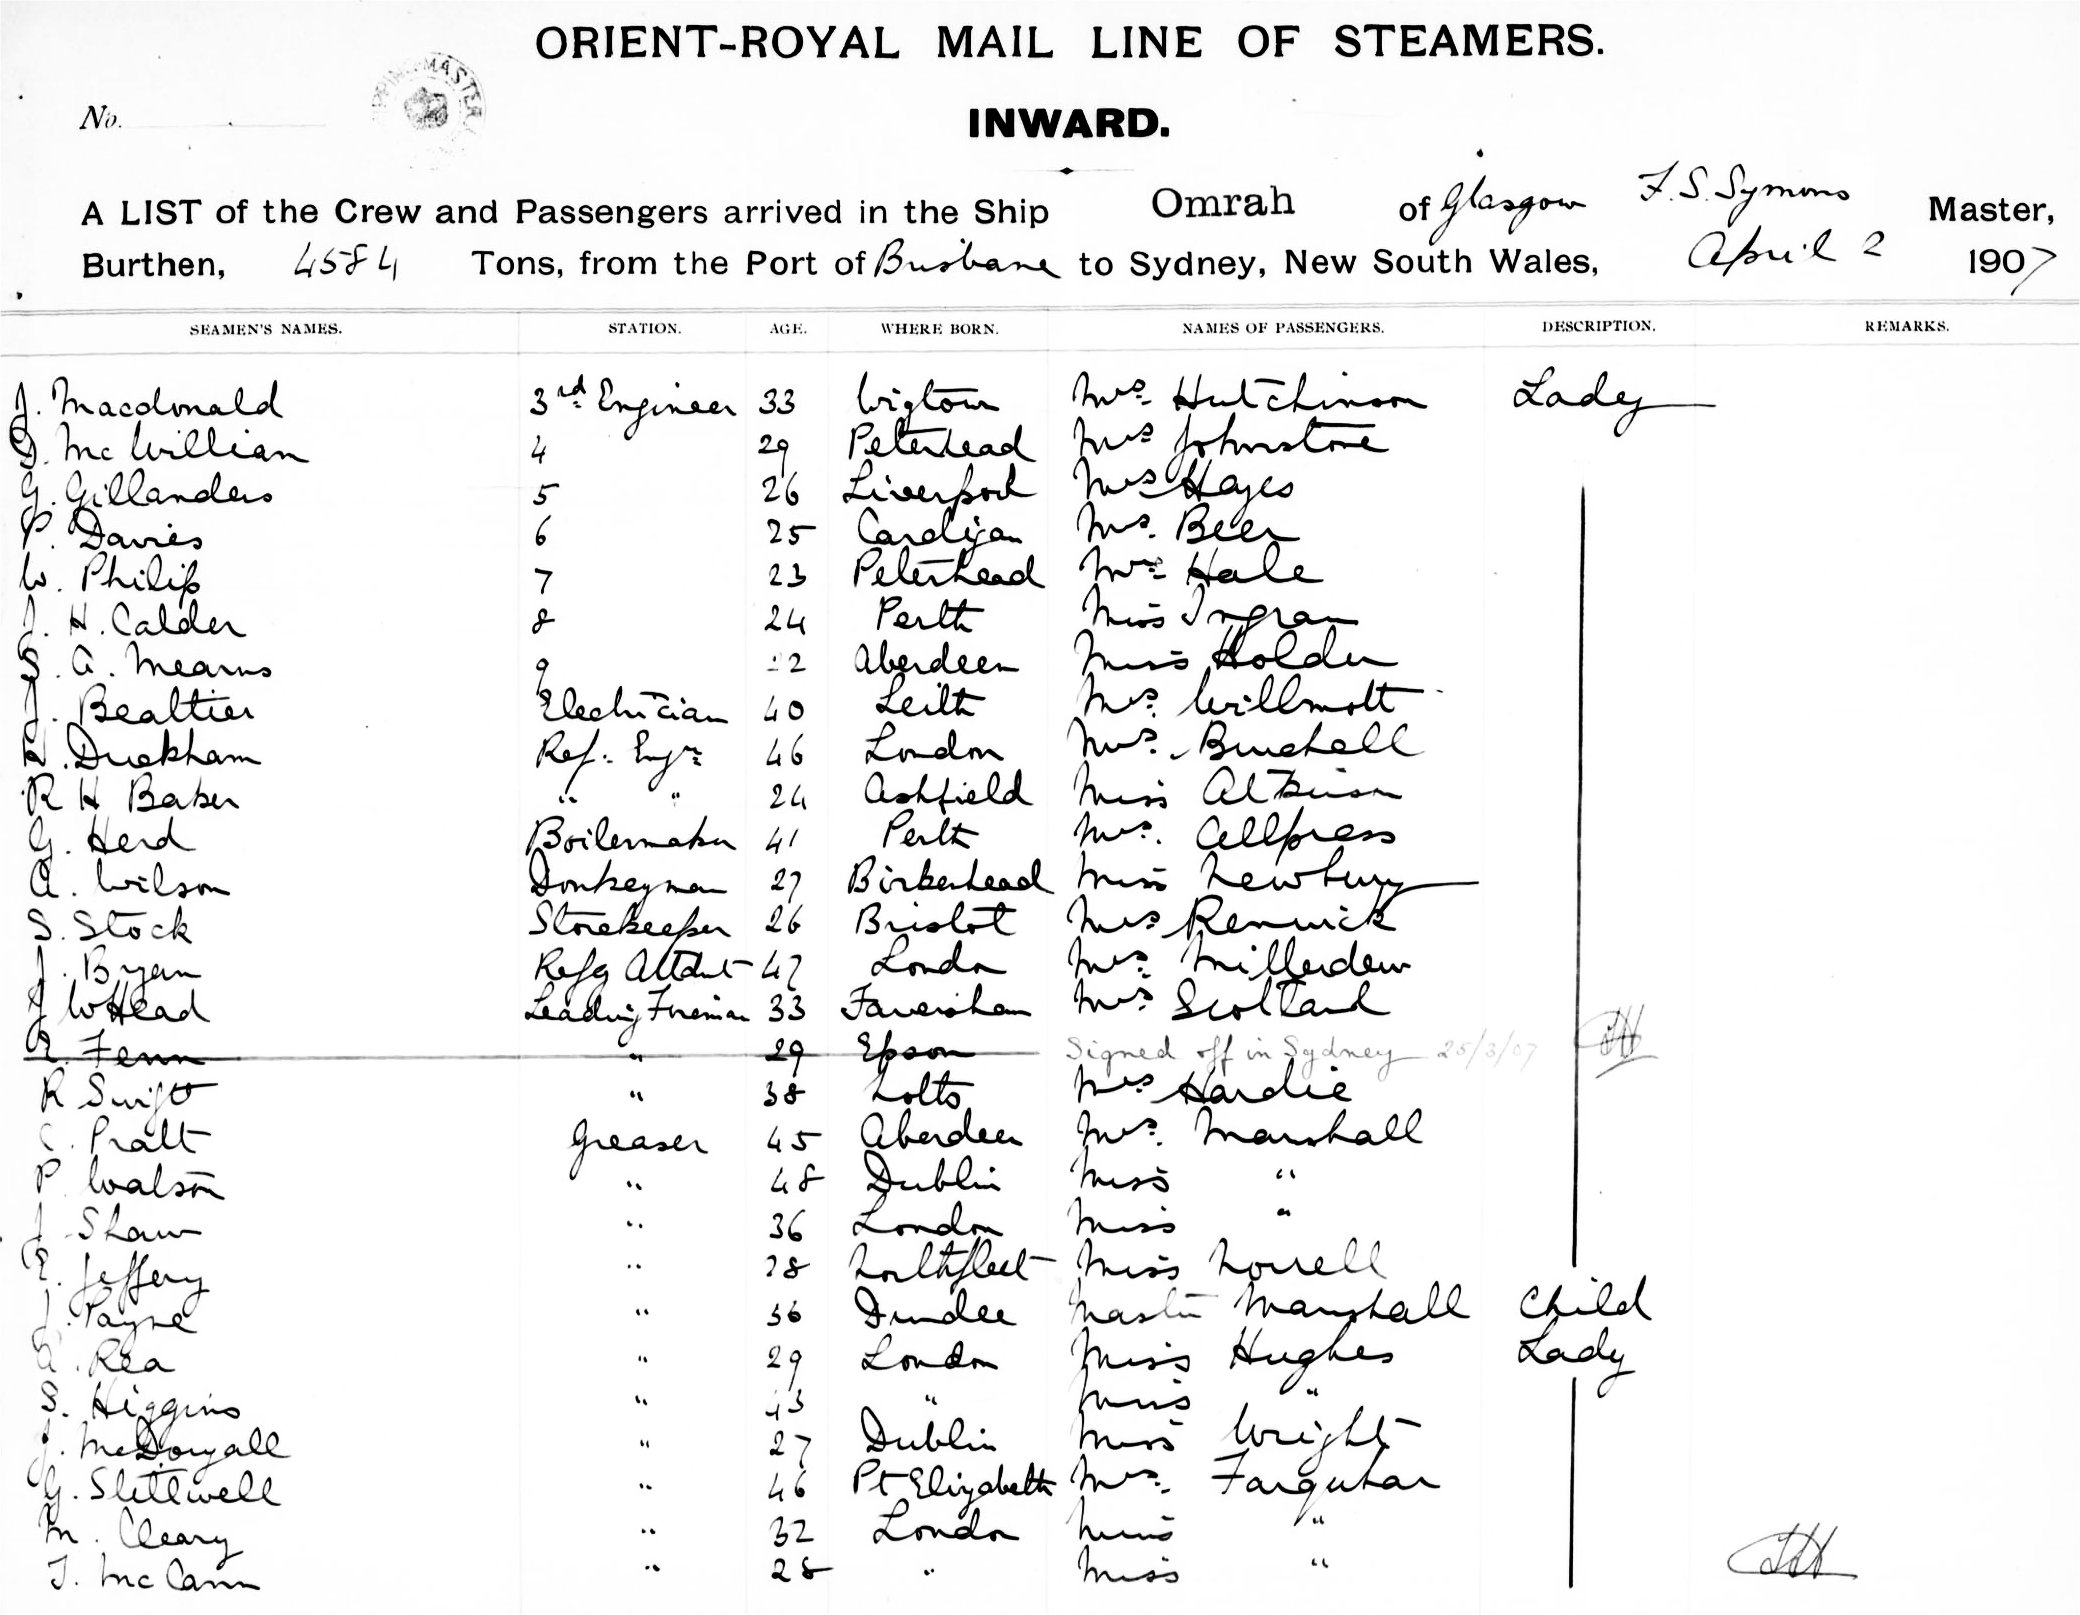 ORIENT-ROYAL MAIL LINE OF STEAMERS.
No.
INWARD.
A LIST of the Crew and Passengers arrived in the Ship Omrah of Glasgow F. S. Symons Master,
Burthen, 4584 Tons, from the Port of Brisbane to Sydney, New South Wales, April 2 1907
SEAMEN'S NAMES. STATION. AGE. WHERE BORN. NAMES OF PASSENGERS. DESCRIPTION. REMARKS.
J. Macdonald 3rd Engineer 33 Wigtown Mrs. Hutchinson Lady
D. McWilliam 4 29 Peterhead Mrs Johnstone
G. Gillanders 5 26 Liverpool Mrs Hayes
P. Davies 6 25 Cardigan Mrs. Beer
W. Philip 7 23 Peterhead Mrs Hale
J. H. Calder 8 24 Perth Miss Ingram
S. A. Mearns 9 22 Aberdeen Miss Holder
J. Beattier Electrician 40 Leith Mrs. Willmott
H. Duckham Ref. Engr 46 London Mrs. Burchell
R H Baker " " 24 Ashfield Miss Atkinson
G. Herd Boilermaker 41 Perth Mrs. Allpress
A. Wilson Donkeyman 27 Birkenhead Miss Newbury
S. Stock Storekeeper 26 Bristol Mrs Renwick
J. Bryan Refg Attdnt 47 London Mrs.
J W Head Leading Fireman 33 Faversham Mrs Scotland
E. Fenn " 29 Epsom Signed off in Sydney 25/3/07
R Swift " 38 Lotts Mrs Hardie
C. Pratt Greaser 45 Aberdeen Mrs. Marshall
P Watson " 48 Dublin Miss "
J Shaw " 36 London Miss "
E. Jeffery " 28 Northfleet Miss Norrell
J. Payne " 36 Dundee Master Marshall Child
A. Rea " 29 London Miss Hughes Lady
S. Higgins " 43 " Miss "
J. McDougall " 27 Dublin Miss Wright
G. Stillwell " 46 Pt Elizabeth Mrs. Farquhar
M. Cleary " 32 London Miss "
T. McCann " 28 " Miss "